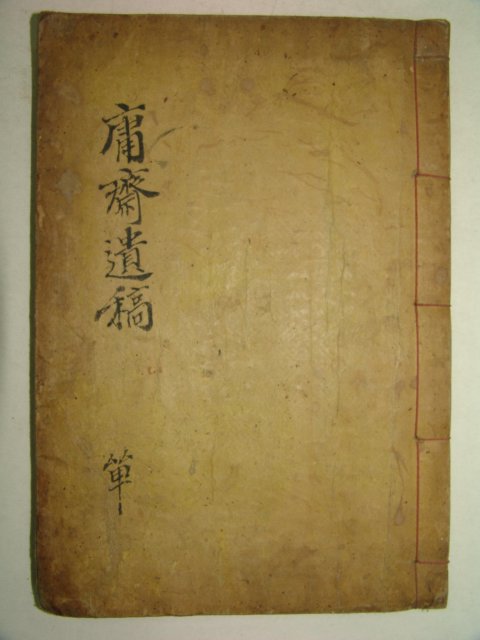 庸齋遺稿
單